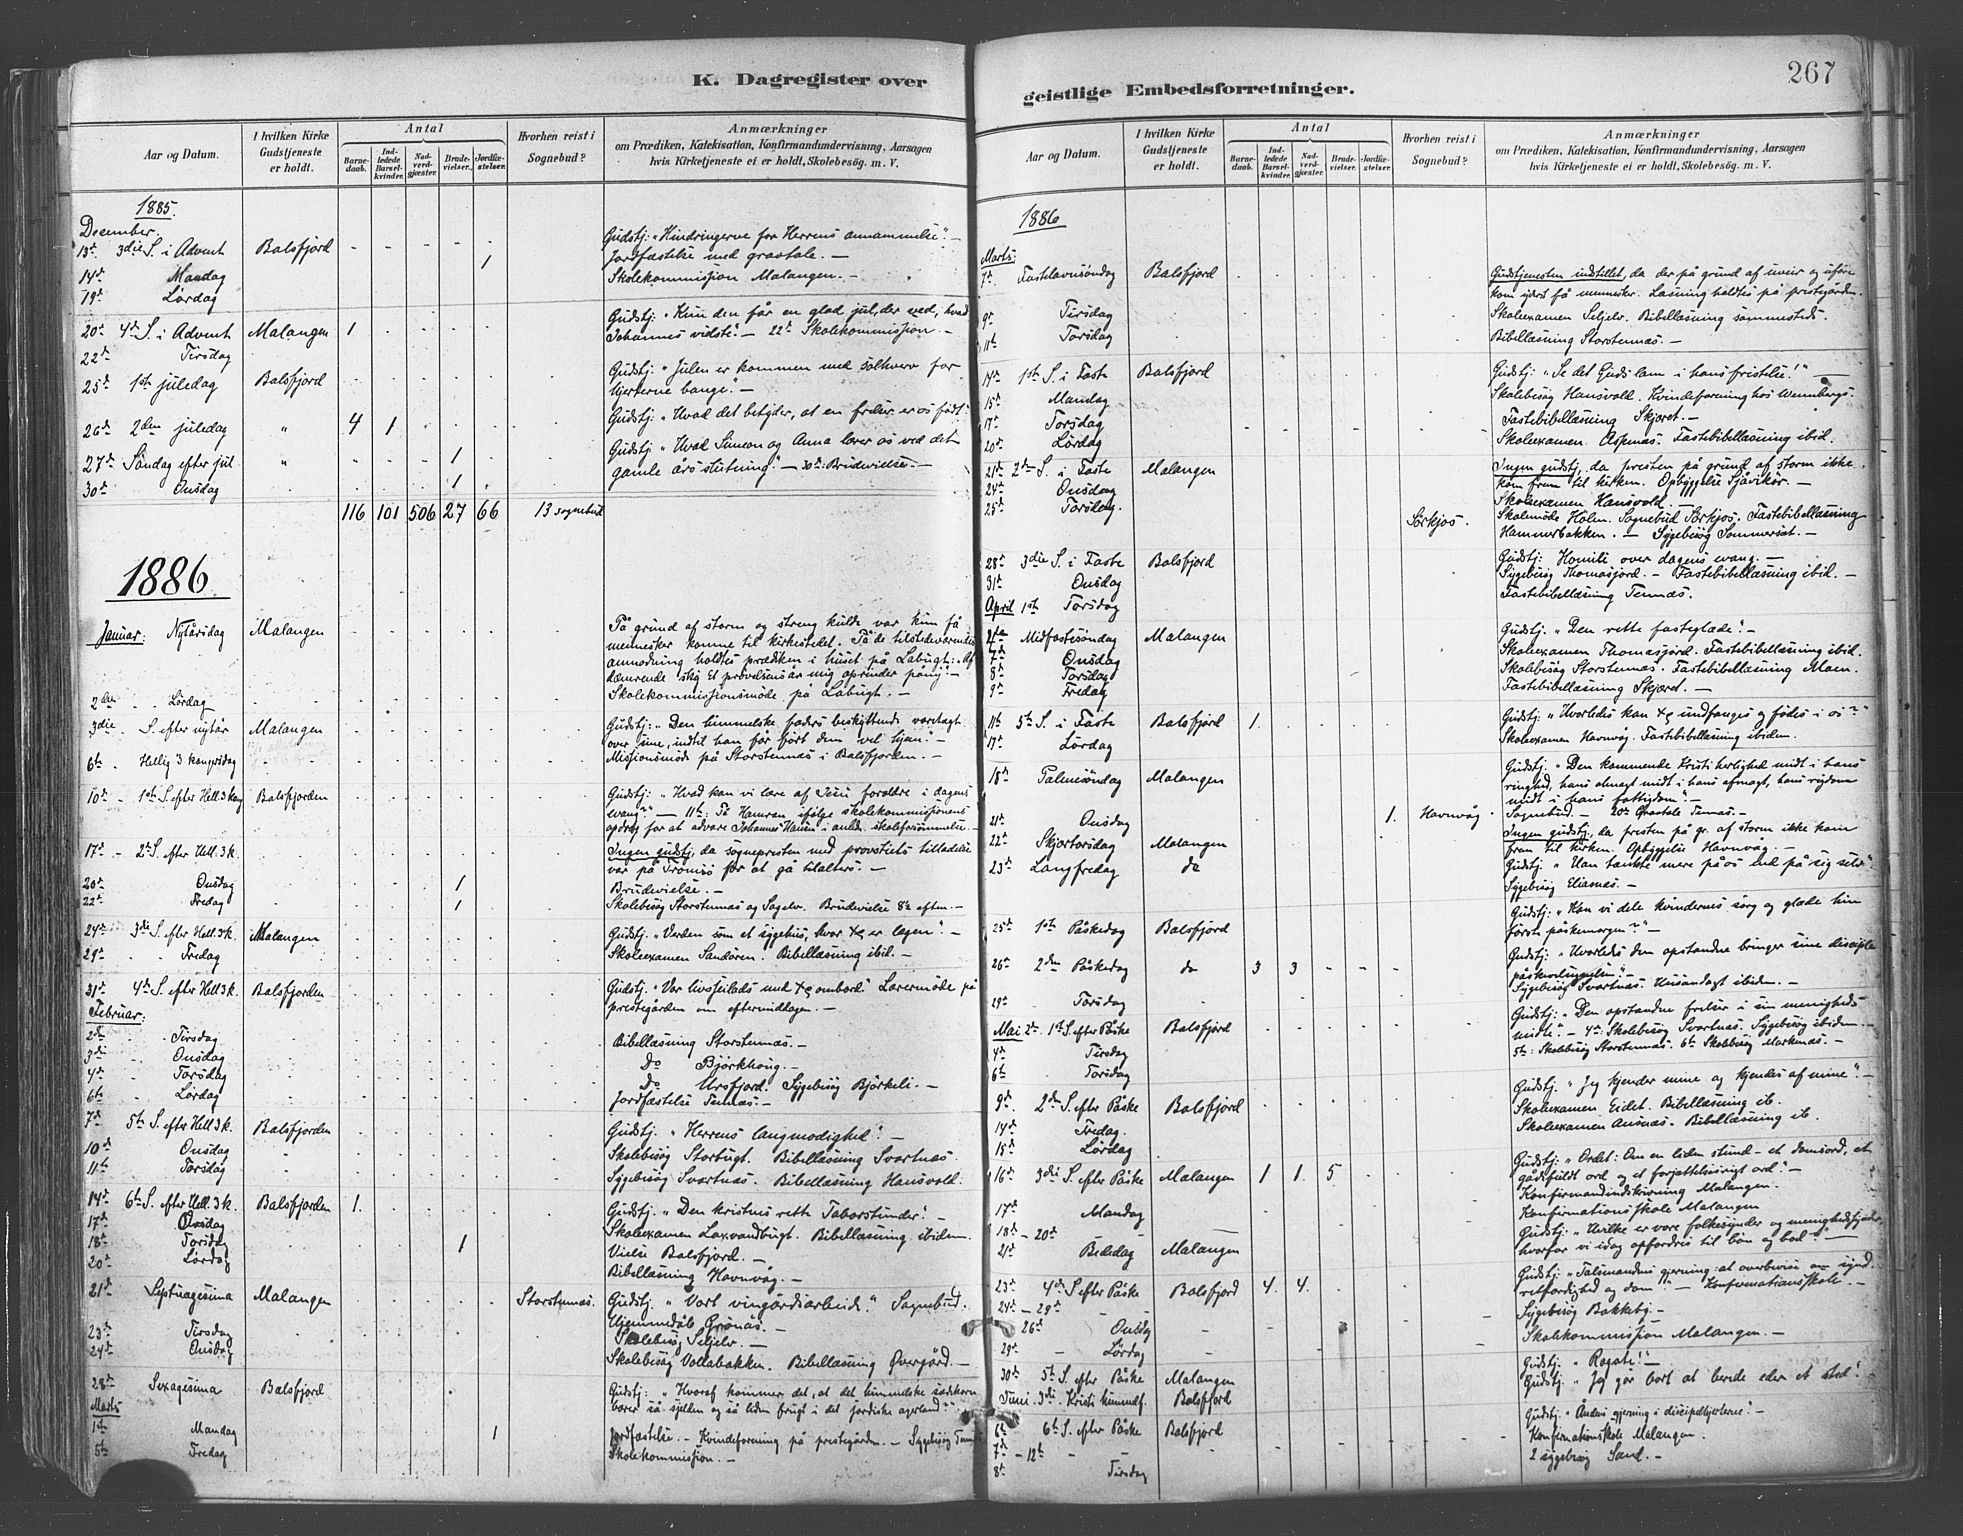 K. Dagregister over
Aar og Datum.
I hvilken Kirke Gudstjeneste er holdt.
Antal
Barnedaab.
Indledede Barselkvinder.
Nadverdgjæster.
Brudevielser.
Jordfæstelser.
Hvorhen reist i Sognebud?
Anmærkninger
om Prædiken, Katekisation, Konfirmandundervisning, Aarsagen
hvis Kirketjeneste ei er holdt, Skolebesög. m. V.
1885.
December.
13de 3die S. i Advent Balsfjord - - - - - Gudstj: "Hindringerne for Herrens annammelse". -
14de Mandag 1 Jordfæstelse med gravtale. -
19de Lördag Skolekommission Malangen. -
20de 4de S. i Advent Malangen 1 Gudstj: "Kun den får en glad jul, der ved, hvad
22de Tirsdag Johannes vidste". - 22de Skolekommission. -
25de 1ste juledag Balsfjord Gudstj: "Julen er kommen med solhverv for
hjerterne bange". -
26de 2den juledag " 4 1 Gudstj: "Hvad det betyder, at en frelser er os födt".
27de Söndag efter jul " 1 Gudstj: "Hvad Simeon og Anna lover os ved det
30de Onsdag 1 gamle års slutning". - 30de: Brudevielse. -
116 101 506 27 66 13 sognebud
1886.
Januar: Nytårsdag Malangen På grund af storm og streng kulde var kun få
mennesker komne til kirkestedet. På de tilstedeværendes
anmodning holdtes prædiken i huset på Labugt: "Af
dæmrende sky Et prövelsens år mig oprinder påny". -
2den Lördag Skolekommissionsmöde på Labugt. -
3die S. efter nytår Malangen Gudstj: "Den himmelske faders beskyttende varetægt
over sine, indtil han får fört dem vel hjem". -
6te Hellig 3 kongersdag Missionsmöde på Storstennæs i Balsfjorden. -
10de 1ste S. efter Hell. 3 kong Balsfjorden Gudstj: "Hvad kan vi lære af Jesu forældre i dagens
evang?" - 11te: På Hamren ifölge skolekommissionens
opdrag for at advare Johannes Hansen i anledn. skoleforsömmelse. -
17de 2den S. efter Hell. 3 k. Ingen gudstj, da sognepresten med provstiets tilladelse
var på Tromsö for at gå tilalters. -
20de Onsdag 1 Brudevielse. -
22de Fredag 1 Skolebesög Storstennæs og Sagelv. Brudevielse 8½ eftm. -
24de 3die S. efter Hell. 3 k. Malangen Gudstj: "Verden som et sygehus, hvor Xs er lægen". -
29de Fredag Skoleexamen Sandören. Bibellæsning ibid. -
31te 4de S. efter Hell 3 k. Balsfjorden Gudstj: "Vor livsseilads med Xs ombord." Lærermöde på
prestegården om eftermiddagen. -
Februar:
2den Tirsdag Bibellæsning Storstennæs. -
3die Onsdag Do Björkhaug. -
4de Torsdag Do Ursfjord. Sygebesög Björkeli. -
6te Lördag Jordfæstelse Tennæs. -
7de 5te S. efter Hell 3 k. Balsfjorden Gudstj: "Herrens langmodighed". -
10de Onsdag Skolebesög Storbugt. Bibellæsning Svartnæs.
11te Torsdag Sygebesög Svartnæs. Bibellæsning Hansvold.
14de 6te S. efter Hell. 3 k. Balsfjorden 1. Gudstj: "Den kristnes rette Taborstunder". -
17de Onsdag Skoleexamen Laxvandbugt. Bibellæsning ibidem.
18de Torsdag 1 Vielse Balsfjord. -
20de Lördag Bibellæsning Havnvåg. -
21de Septuagesima Malangen Storstennæs. Gudstj: "Vort vingårdsarbeide." Sognebud.
Hjemmedåb Grönås. -
23de Tirsdag Skolebesög Seljelv. -
24de Onsdag Skolebesög Vollabakken. Bibellæsning Övergård. -
28de Sexagesima Balsfjord Gudstj: "Hvoraf kommer det, at det himmelske sædekorn
bærer så sjelden og så liden frugt i det jordiske agerland?"
Marts
1ste Mandag 1 Jordfæstelse. - Kvindeforening på prestegården. - Sygebesög Tennæs
5te Fredag Skolekommission. -
geistlige Embedsforretninger.
267
Aar og Datum.
I hvilken Kirke Gudstjeneste er holdt.
Antal
Barnedaab.
Indledede Barselkvinder.
Nadverdgjæster.
Brudevielser.
Jordfæstelser.
Hvorhen reist i Sognebud?
Anmærkninger
om Prædiken, Katekisation, Konfirmandundervisning, Aarsagen
hvis Kirketjeneste ei er holdt, Skolebesög. m. V.
1886
Marts:
7de Fastelavnsöndag Balsfjord Gudstjenesten indstillet, da der på grund af uveir og uföre
kom yderst få mennesker. Læsning holdtes på prestegården.
9de Tirsdag Skoleexamen Seljelv. Bibellæsning sammesteds.
11te Torsdag Bibellæsning Storstennæs. -
14de 1ste S. i Faste Balsfjord Gudstj: "Se det Guds lam i hans fristelse!" -
15de Mandag Skolebesög Hansvold. Kvindeforening hos Wennbergs.
17de Torsdag Fastebibellæsning Skjæret. -
20de Lördag Skoleexamen Aspenæs. Fastebibellæsning ibid.
21de 2den S. i Faste Malangen Ingen gudstj, da presten på grund af storm ikke
kom frem til kirken. Opbyggelse Sjåvikör. -
24de Onsdag Skoleexamen Hansvold. -
25de Torsdag. Sörkjos. Skolemöde Holm. Sognebud Sörkjos. Fastebibellæsning
Hammerbakken. - Sygebesög Sommersæt. -
28de 3die S. i Faste Balsfjord Gudstj: Homili over dagens evang. -
31te Onsdag Sygebesög Thomasjord. - Fastebibellæsning ibid. -
April 1ste Torsdag Fastebibellæsning Tennæs.
4de Midfastesöndag Malangen Gudstj: "Den rette fasteglæde". -
7de Onsdag Skoleexamen Thomasjord. Fastebibellæsning ibid.
8de Torsdag Skolebesög Storstennæs. Fastebibellæsning Moen.
9de Fredag Fastebibellæsning Skjæret. -
11te 5te S. i Faste Balsfjord 1. Gudstj: "Hvorledes kan Xs undfanges og födes i os?"
17de Lördag Skoleexamen Havnvåg. Fastebibellæsning ibidem.
18de Palmesöndag Malangen Gudstj: "Den kommende Kristi herlighed midt i hans
ringhed, hans almagt midt i hans afmagt, hans rigdom
midt i hans fattigdom". -
21de Onsdag 1. Havnvåg. Sognebud. - 20de Gravtale Tennæs. -
22de Skjærtorsdag Malangen Ingen gudstj, da presten på gr. af storm ikke kom
frem til kirken. Opbyggelse Havnvåg. -
23de Langfredag do Gudstj: "Han tænkte mere på os end på sig selv".
Sygebesög Eliasnæs. -
25de 1ste Påskedag Balsfjord Gudstj: "Kan vi dele kvindernes sorg og glæde hin
förste påskemorgen?" -
26de 2den Påskedag do 3 3 - - - Gudstj: "Hvorledes den opstandne bringer sine disciple
29de Torsdag Sygebesög Svartnæs. Husandagt ibidem. -
Mai 2den 1ste S. efter Påske Balsfjord Gudstj: "Den opstandne frelser i sin menigheds
4de Tirsdag midte". - 4de: Skolebesög Svartnæs. Sygebesög ibidem. -
6te Torsdag 5te: Skolebesög Storstennæs. 6te Skolebesög Markenæs. -
9de 2den S. efter Påske Balsfjord Gudstj: "Jeg kjender mine og kjendes af mine". -
14de Fredag. Skoleexamen Eidet. Bibellæsning ib.
15de Lördag Skoleexamen Ansnæs. Bibellæsning ib.
16de 3die S. efter Påske Malangen 1 1. 5 Gudstj: "Ordet: Om en liden stund - et domsord, et
gådefuldt ord og et forjættelsesrigt ord". -
Konfirmandindskrivning Malangen.
17de Mandag Konfirmationsskole Malangen
18de - 20de
21de Bededag Malangen Gudstj: "Hvilke er vore folkesynder og menighedssynder,
hvorfor vi idag opfordres til bön og bod". -
23de 4de S. efter Påske Balsfjord 4. 4. Gudstj: "Talsmandens gjerning at overbevise om synd.
24de - 29de retfærdighed og dom". - Konfirmationsskole. -
26de Onsdag Sygebesög Bakkeby. -
29de Lördag Skolekommission Malangen. -
30te 5te S. efter Påske Malangen Gudstj: "Rogate!" -
Juni 3die Kristi himmelf. Balsfjord Gudstj: "Jeg går bort at berede eder et sted".
6te 6te S. efter Påske Balsfjord Gudstj: "Åndens gjerning i discipelhjerterne". -
7de - 12te Konfirmationsskole Malangen.
8de Tirsdag 2 sygebesög Sand. -